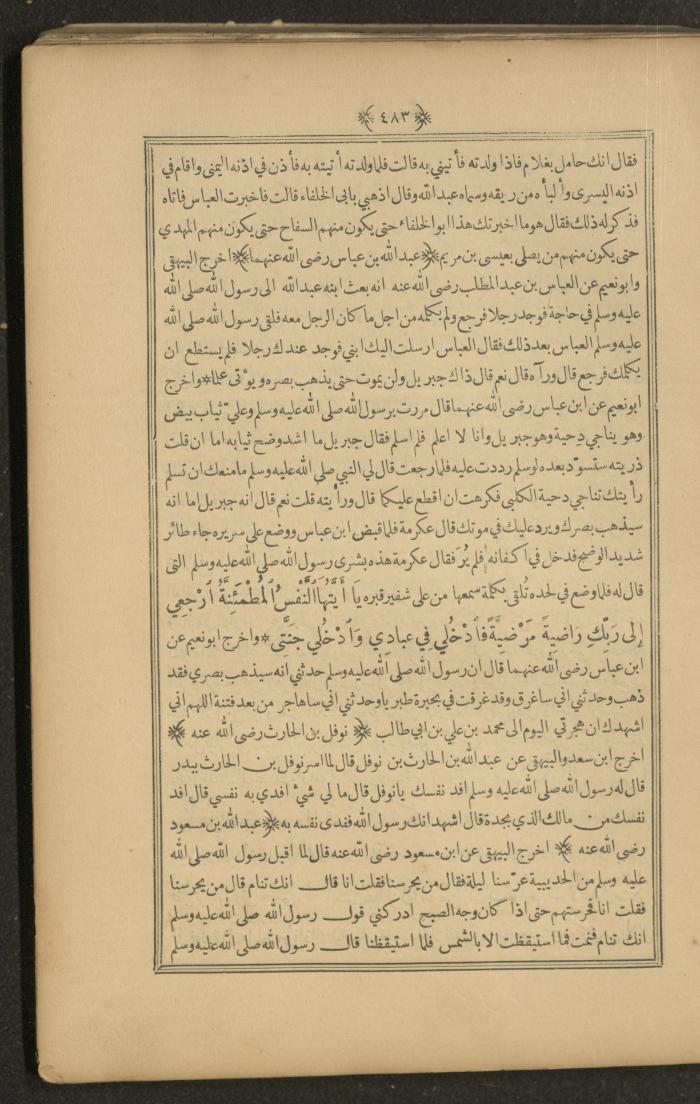 ﴿ ٤٨٣ ﴾
فقال انك حامل بغلام فاذا ولدته فأتيني به قالت فلما ولدته أتيته به فأذن في اذنه اليمنى واقام في
اذنه اليسرى وألبأه من ريقه وسماه عبد الله وقال اذهبي بابى الخلفاء قالت فاخبرت العباس فاتاه
فذكر له ذلك فقال هو ما اخبرتك هذا ابو الخلفاء حتى يكون منهم السفاح حتى يكون منهم المهدي
حتى يكون منهم من يصلى بعيسى بن مريم ﴿ عبد الله بن عباس رضى الله عنهما ﴾ اخرج البيهقى
وابونعيم عن العباس بن عبد المطلب رضى الله عنه انه بعث ابنه عبد الله الى رسول الله صلى الله
عليه وسلم في حاجة فوجد رجلا فرجع ولم يكلمه من اجل ما كان الرجل معه فلقى رسول الله صلى الله
عليه وسلم العباس بعد ذلك فقال العباس ارسلت اليك ابني فوجد عندك رجلا فلم يستطع ان
يكلمك فرجع قال ورآه قال نعم قال ذاك جبريل ولن يموت حتى يذهب بصره ويؤتى علما * واخرج
ابونعيم عن ابن عباس رضى الله عنهما قال مررت برسول الله صلى الله عليه وسلم وعليّ ثياب بيض
وهو يناجي دحية وهو جبريل وانا لا اعلم فلم اسلم فقال جبريل ما اشد وضح ثيابه اما ان
ذريته ستسوّد بعده لو سلم رددت عليه فلما رجعت قال لي النبي صلى الله عليه وسلم ما منعك ان تسلم
رأيتك تناجي دحية الكلبى فكرهت ان اقطع عليكما قال ورأيته قلت نعم قال انه جبريل اما انه
سيذهب بصرك ويرد عليك في موتك قال عكرمة فلما قبض ابن عباس ووضع على سريره جاء طائر
شديد الوضح فدخل في اكفانه فلم يُرَ فقال عكرمة هذه بشرى رسول الله صلى الله عليه وسلم التى
قال له فلما وضع في لحده تُلقى بكلمة سمعها من على شفير قبره يَا أَيَّتُهَا ٱلنَّفْسُ ٱلْمُطْمَئِنَّةُ ٱرْجِعِي
إِلَى رَبِّكِ رَاضِيَةً مَرْضِيَّةً فَٱدْخُلِي فِي عِبَادِي وَٱدْخُلِي جَنَّتِي * واخرج ابونعيم عن
ابن عباس رضى الله عنهما قال ان رسول الله صلى الله عليه وسلم حدثني انه سيذهب بصري فقد
ذهب وحدثني اني ساغرق وقد غرقت في بحيرة طبريا وحدثني اني ساهاجر من بعد فتنة اللهم اني
اشهدك ان هجرتي اليوم الى محمد بن علي بن ابي طالب ﴿ نوفل بن الحارث رضى الله عنه ﴾
اخرج ابن سعد والبيهقى عن عبد الله بن الحارث بن نوفل قال لما اسر نوفل بن الحارث ببدر
قال له رسول الله صلى الله عليه وسلم افد نفسك يا نوفل قال ما لي شيء افدي به نفسي قال افد
نفسك من مالك الذي بجدة قال اشهد انك رسول الله ففدى نفسه به ﴿ عبد الله بن مسعود
رضى الله عنه ﴾ اخرج البيهقى عن ابن مسعود رضى الله عنه قال لما اقبل رسول الله صلى الله
عليه وسلم من الحديبية عرّسنا ليلة فقال من يحرسنا فقلت انا قال انك تنام قال من يحرسنا
فقلت انا فحرستهم حتى اذا كان وجه الصبح ادركني قول رسول الله صلى الله عليه وسلم
انك تنام فنمت فما استيقظت الا بالشمس فلما استيقظنا قال رسول الله صلى الله عليه وسلم